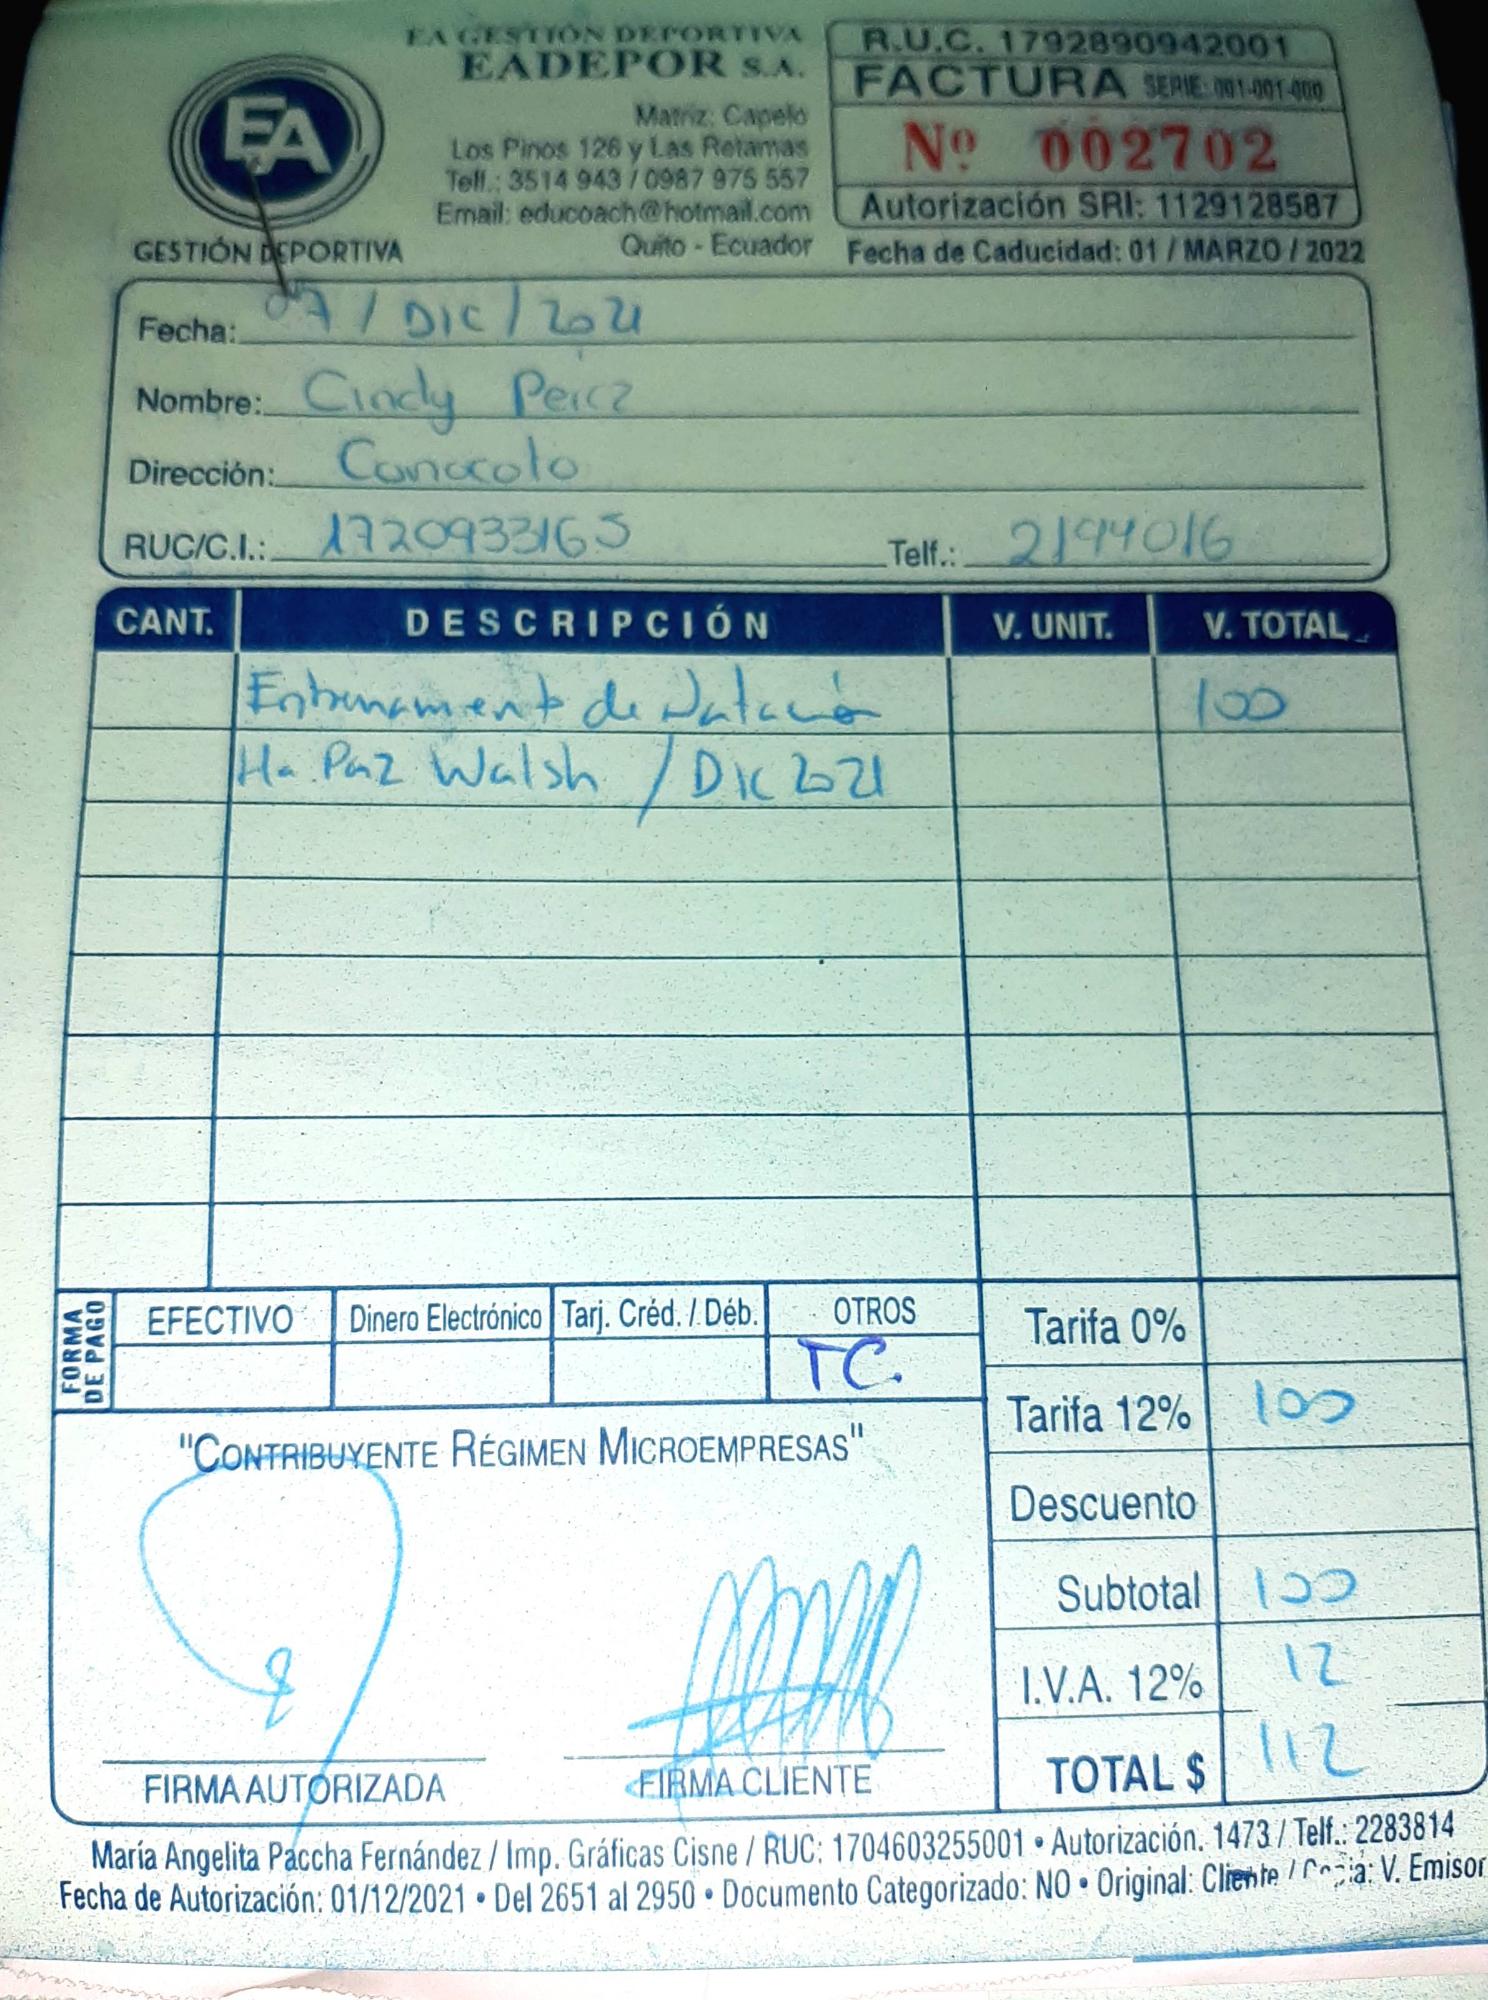 EA GESTIÓN DEPORTIVA
EADEPOR S.A.
Matriz: Capelo
Los Pinos 126 y Las Retamas
Telf.: 3514 943 / 0987 975 557
Email: educoach@hotmail.com
Quito - Ecuador
EA
GESTIÓN DEPORTIVA
R.U.C. 1792890942001
FACTURA SERIE: 001-001-000
Nº 002702
Autorización SRI: 1129128587
Fecha de Caducidad: 01 / MARZO / 2022
Fecha: 07 / DIC / 2021
Nombre: Cindy Pérez
Dirección: Conocoto
RUC/C.I.: 1720933165 Telf.: 2194016
CANT. DESCRIPCIÓN V. UNIT. V. TOTAL
Entrenamiento de Natación 100
Ma. Paz Walsh / Dic 2021
FORMA DE PAGO
EFECTIVO Dinero Electrónico Tarj. Créd. / Déb. OTROS
TC.
Tarifa 0%
Tarifa 12% 100
Descuento
Subtotal 100
I.V.A. 12% 12
TOTAL $ 112
"CONTRIBUYENTE RÉGIMEN MICROEMPRESAS"
FIRMA AUTORIZADA FIRMA CLIENTE
María Angelita Paccha Fernández / Imp. Gráficas Cisne / RUC: 1704603255001 • Autorización. 1473 / Telf.: 2283814
Fecha de Autorización: 01/12/2021 • Del 2651 al 2950 • Documento Categorizado: NO • Original: Cliente / Copia: V. Emisor